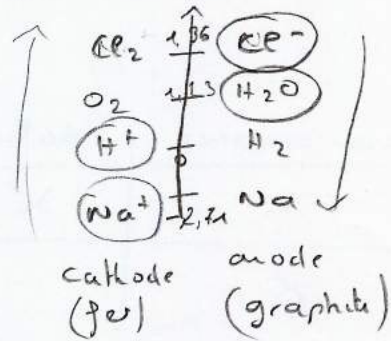 Cl₂ 1,36 Cl⁻
O₂ 1,23 H₂O
H⁺ 0 H₂
Na⁺ -2,71 Na
cathode anode
(fer) (graphite)